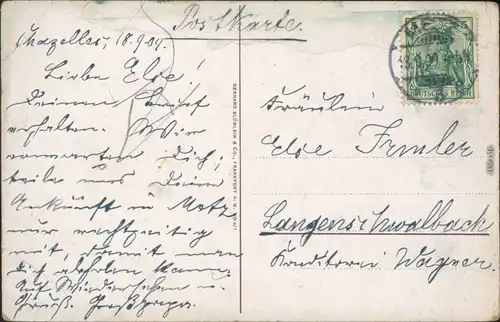 Postkarte.
Chazelles, 18.9.09.
Liebe Else!
Deinen Brief
erhalten. Wir
erwarten Dich;
teile uns Deine
Ankunft in Metz
nur rechtzeitig
mit, damit man
Dich abholen kann.
Auf Wiedersehen u.
Gruß. Großpapa.
GEBHARD BLÜMLEIN & CO., FRANKFURT A. M.
DEUTSCHES REICH
Fräulein
Else Irmler
Langenschwalbach
Konditorei Wagner.